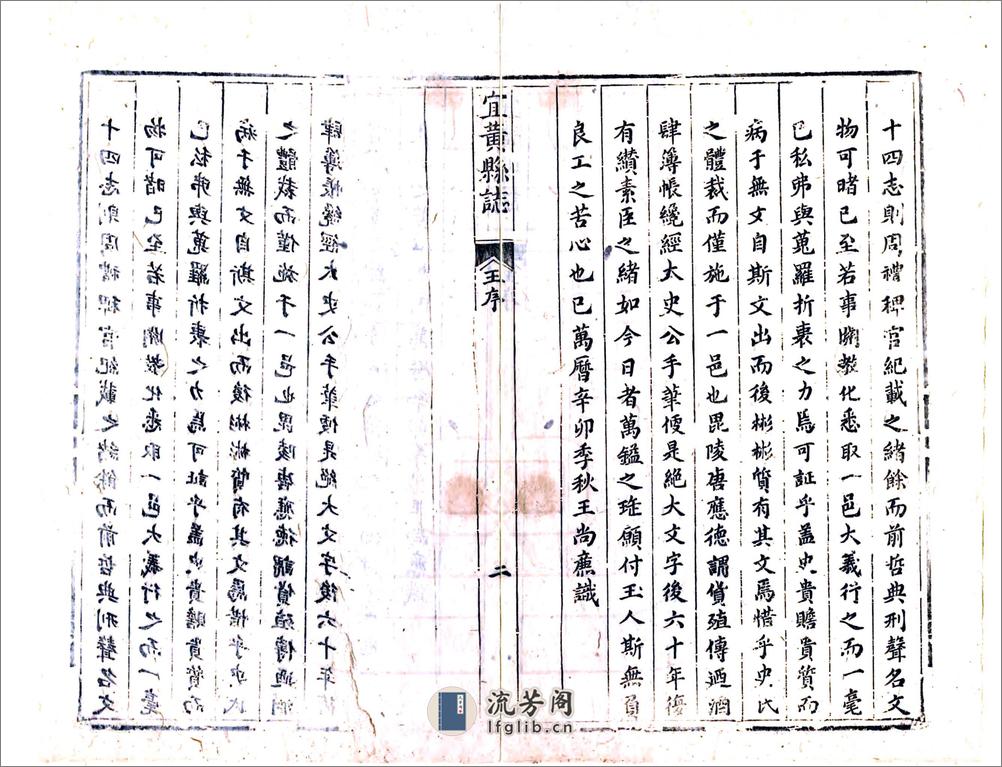 十四志則周禮稗官紀載之緒餘而前哲典刑聲名文
物可睹已至若事關教化悉取一邑大義行之而一毫
已私弗與蒐羅折衷之力焉可証乎蓋史貴贍貴質而
病于無文自斯文出而後彬彬質有其文焉惜乎史氏
之體裁而僅施于一邑也毘陵唐應德謂貨殖傳迺酒
肆簿帳纔經太史公手筆便是絕大文字後六十年復
有纘素臣之緒如今日者萬鎰之琟願付玉人斯無負
良工之苦心也已萬曆辛卯季秋王尚廉識
宜黃縣誌
王序
二
流芳阁
lfglib.cn